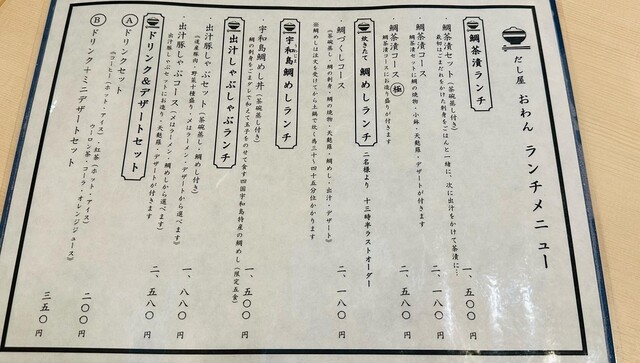 だし屋 おわん ランチメニュー
鯛茶漬ランチ
鯛茶漬セット(茶碗蒸し付き) 一、五〇〇円
最初はごまだれをかけた刺身をごはんと一緒に、次に出汁をかけて茶漬に…
鯛茶漬コース 二、一八〇円
鯛茶漬セットに鯛の焼物・小鉢・天麩羅・デザートが付きます
鯛茶漬コース 極 二、五八〇円
鯛茶漬コースにお造り盛りが付きます
炊きたて 鯛めしランチ 二名様より 十三時半ラストオーダー
鯛づくしコース 二、一八〇円
(茶碗蒸し・鯛の刺身・鯛の焼物・天麩羅・鯛めし・出汁・デザート)
※鯛めしは注文を受けてから土鍋で炊く為三十~四十五分位かかります
宇和島鯛めしランチ
うわじま
宇和島鯛めし丼(茶碗蒸し付き) 一、五〇〇円
鯛の刺身をごまダレで和えて玉子をのせて食す四国宇和島特産の鯛めし(限定五食)
出汁しゃぶしゃぶランチ
出汁豚しゃぶセット(茶碗蒸し・鯛めし付き) 一、八八〇円
(国産豚肉・野菜十種盛り・〆はラーメン・デザート付き)
出汁豚しゃぶコース(〆はラーメン、鯛めしから選べます) 二、五八〇円
出汁豚しゃぶセットにお造り・天麩羅・デザートが付きます
ドリンク&デザートセット
Ⓐ ドリンクセット 二〇〇円
《コーヒー(ホット・アイス)・紅茶(ホット・アイス)
ウーロン茶・コーラ・オレンジジュース》
Ⓑ ドリンク+ミニデザートセット 三五〇円